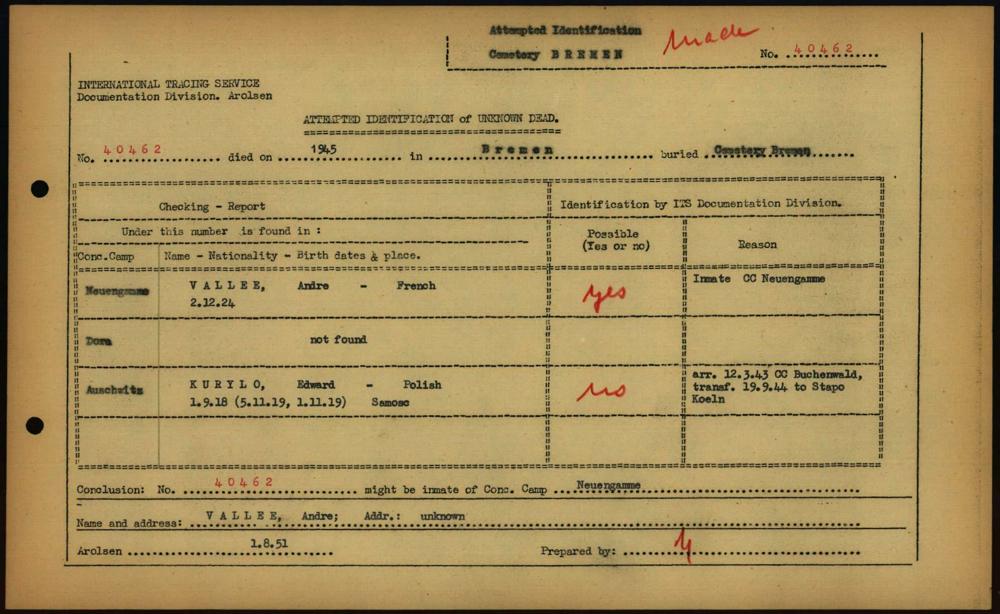 Attempted Identification
Cemetery BREMEN made No. 40462
INTERNATIONAL TRACING SERVICE
Documentation Division. Arolsen
ATTEMPTED IDENTIFICATION of UNKNOWN DEAD.
No. 40462 died on 1945 in Bremen buried Cemetery Bremen
Checking - Report
Identification by ITS Documentation Division.
Under this number is found in :
Possible (Yes or no)
Reason
Conc.Camp
Name - Nationality - Birth dates & place.
Neuengamme
VALLEE, Andre - French
2.12.24
yes
Inmate CC Neuengamme
Dora
not found
Auschwitz
KURYLO, Edward - Polish
1.9.18 (5.11.19, 1.11.19) Samosc
no
arr. 12.3.43 CC Buchenwald,
transf. 19.9.44 to Stapo
Koeln
Conclusion: No. 40462 might be inmate of Conc. Camp Neuengamme
Name and address: VALLEE, Andre; Addr.: unknown
Arolsen 1.8.51 Prepared by: